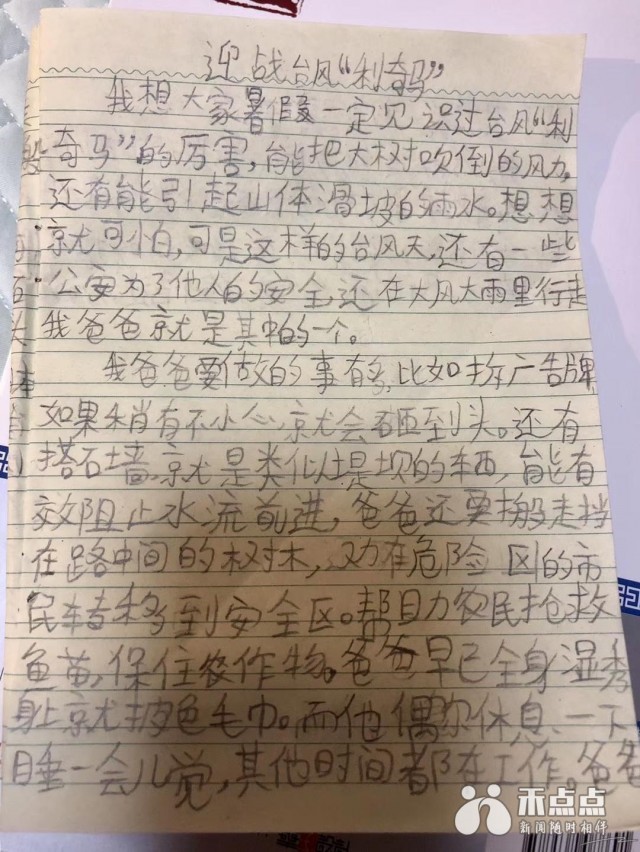 迎战台风“利奇马”
我想大家暑假一定见识过台风“利
奇马”的厉害,能把大树吹倒的风力,
还有能引起山体滑坡的雨水。想想
就可怕,可是这样的台风天,还有一些
公安为了他人的安全,还在大风大雨里行走
我爸爸就是其中的一个。
我爸爸要做的事有多,比如拆广告牌
如果稍有不小心,就会砸到头。还有
搭石墙,就是类似堤坝的东西,能有
效阻止水流前进,爸爸还要搬走挡
在路中间的树木,劝有危险区的市
民转移到安全区。帮助农民抢救
鱼苗,保住农作物。爸爸早已全身湿秀
身上就披色毛巾。而他偶尔休息一下
睡一会儿觉,其他时间都在工作。爸爸
禾点点
新闻随时相伴